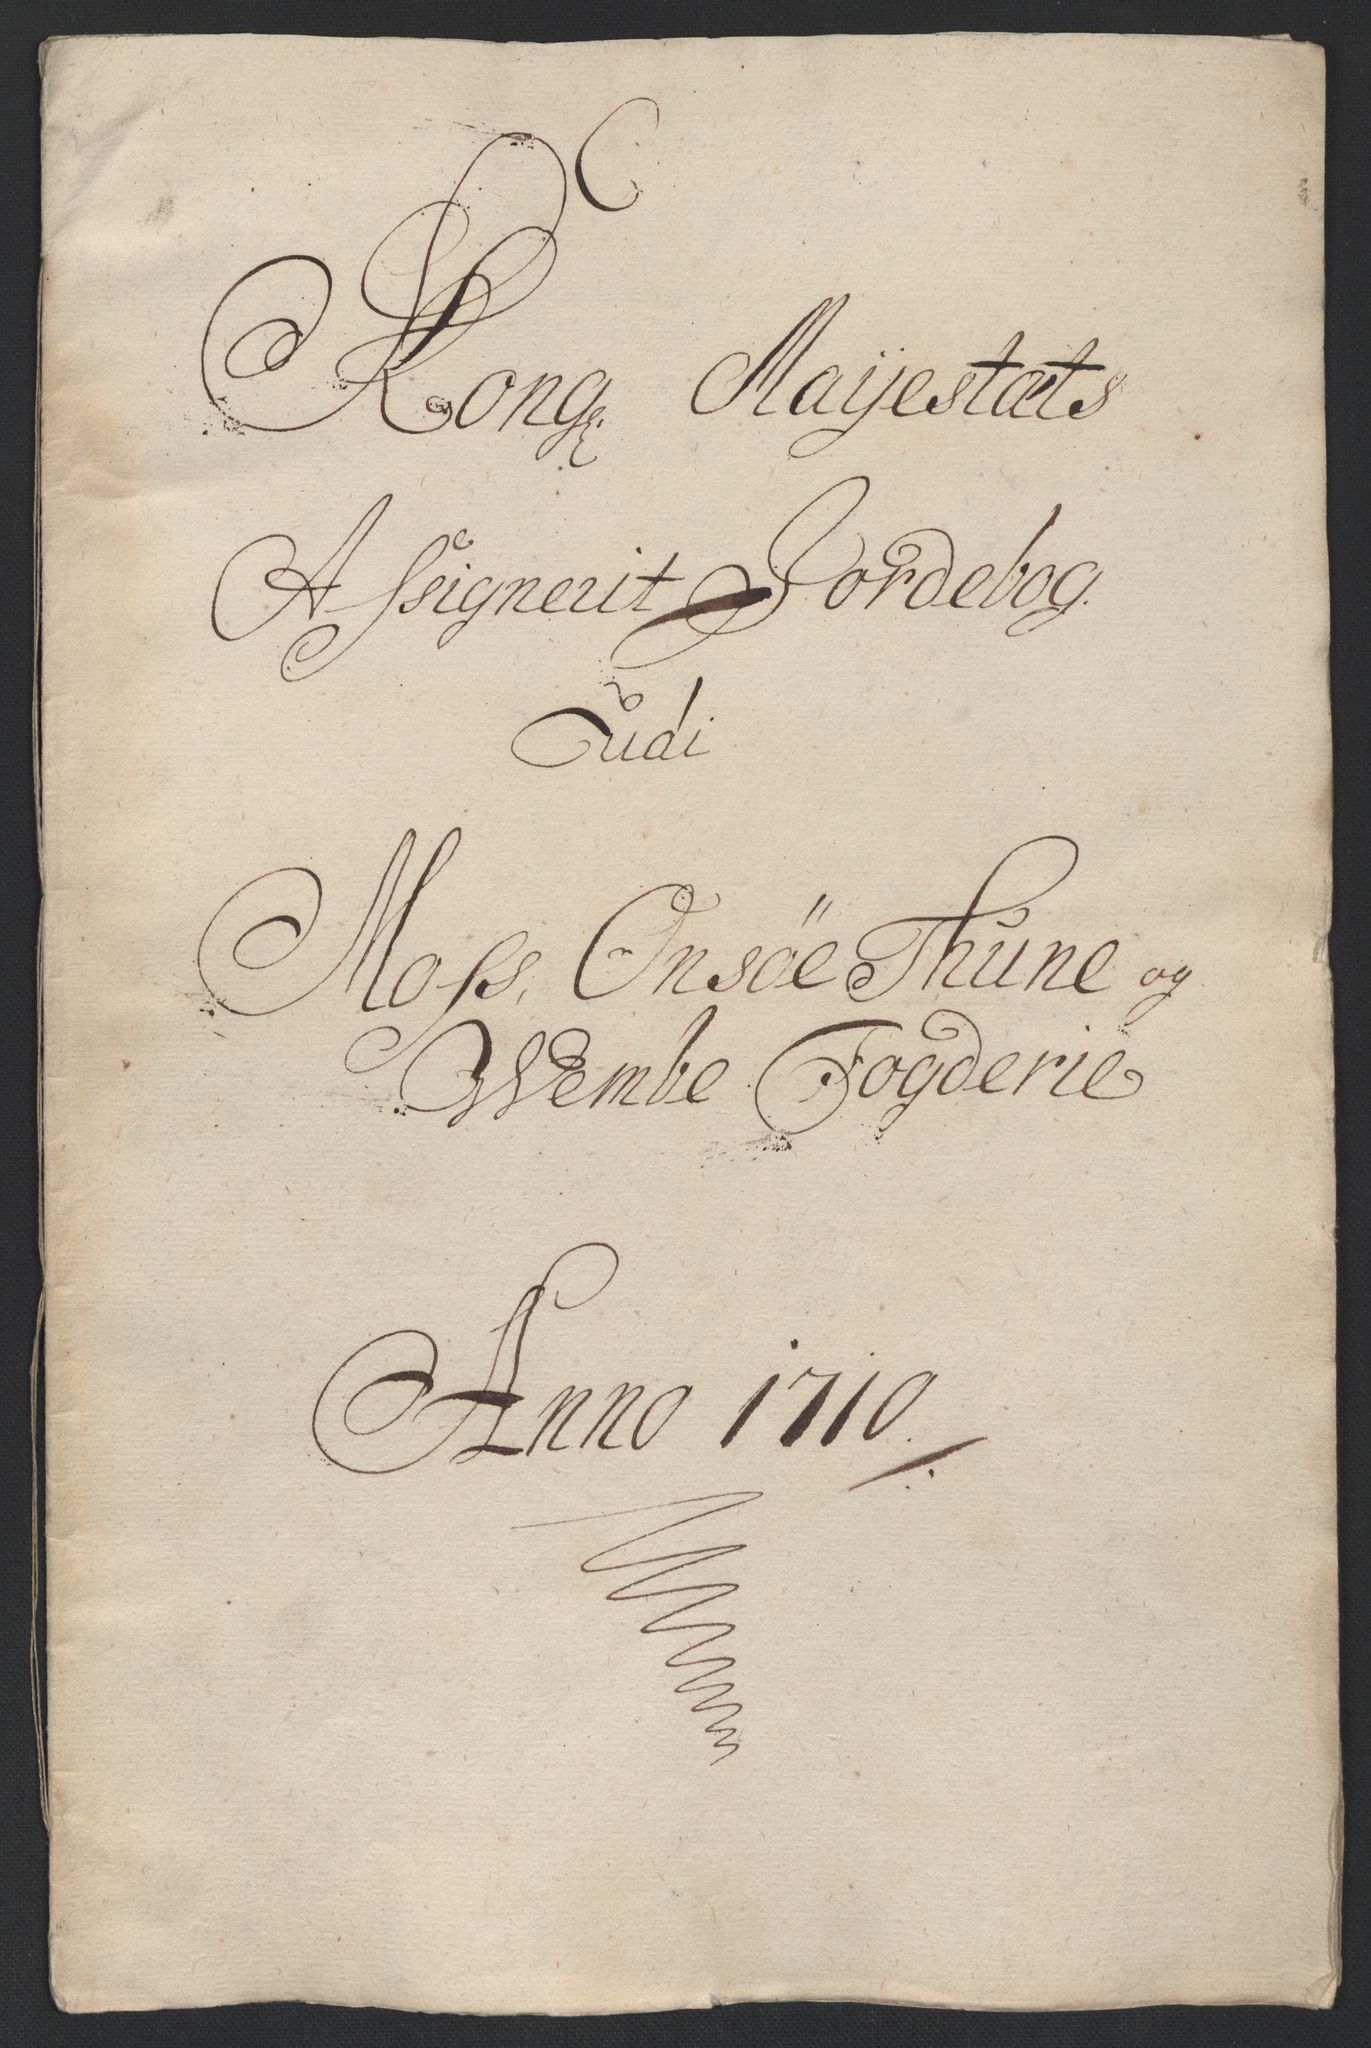 Kong: Maÿestæts
Assignerit Jordebog
Udi
Moss, Onsøe Thune og
Wembe Fogderie
Anno 1710.